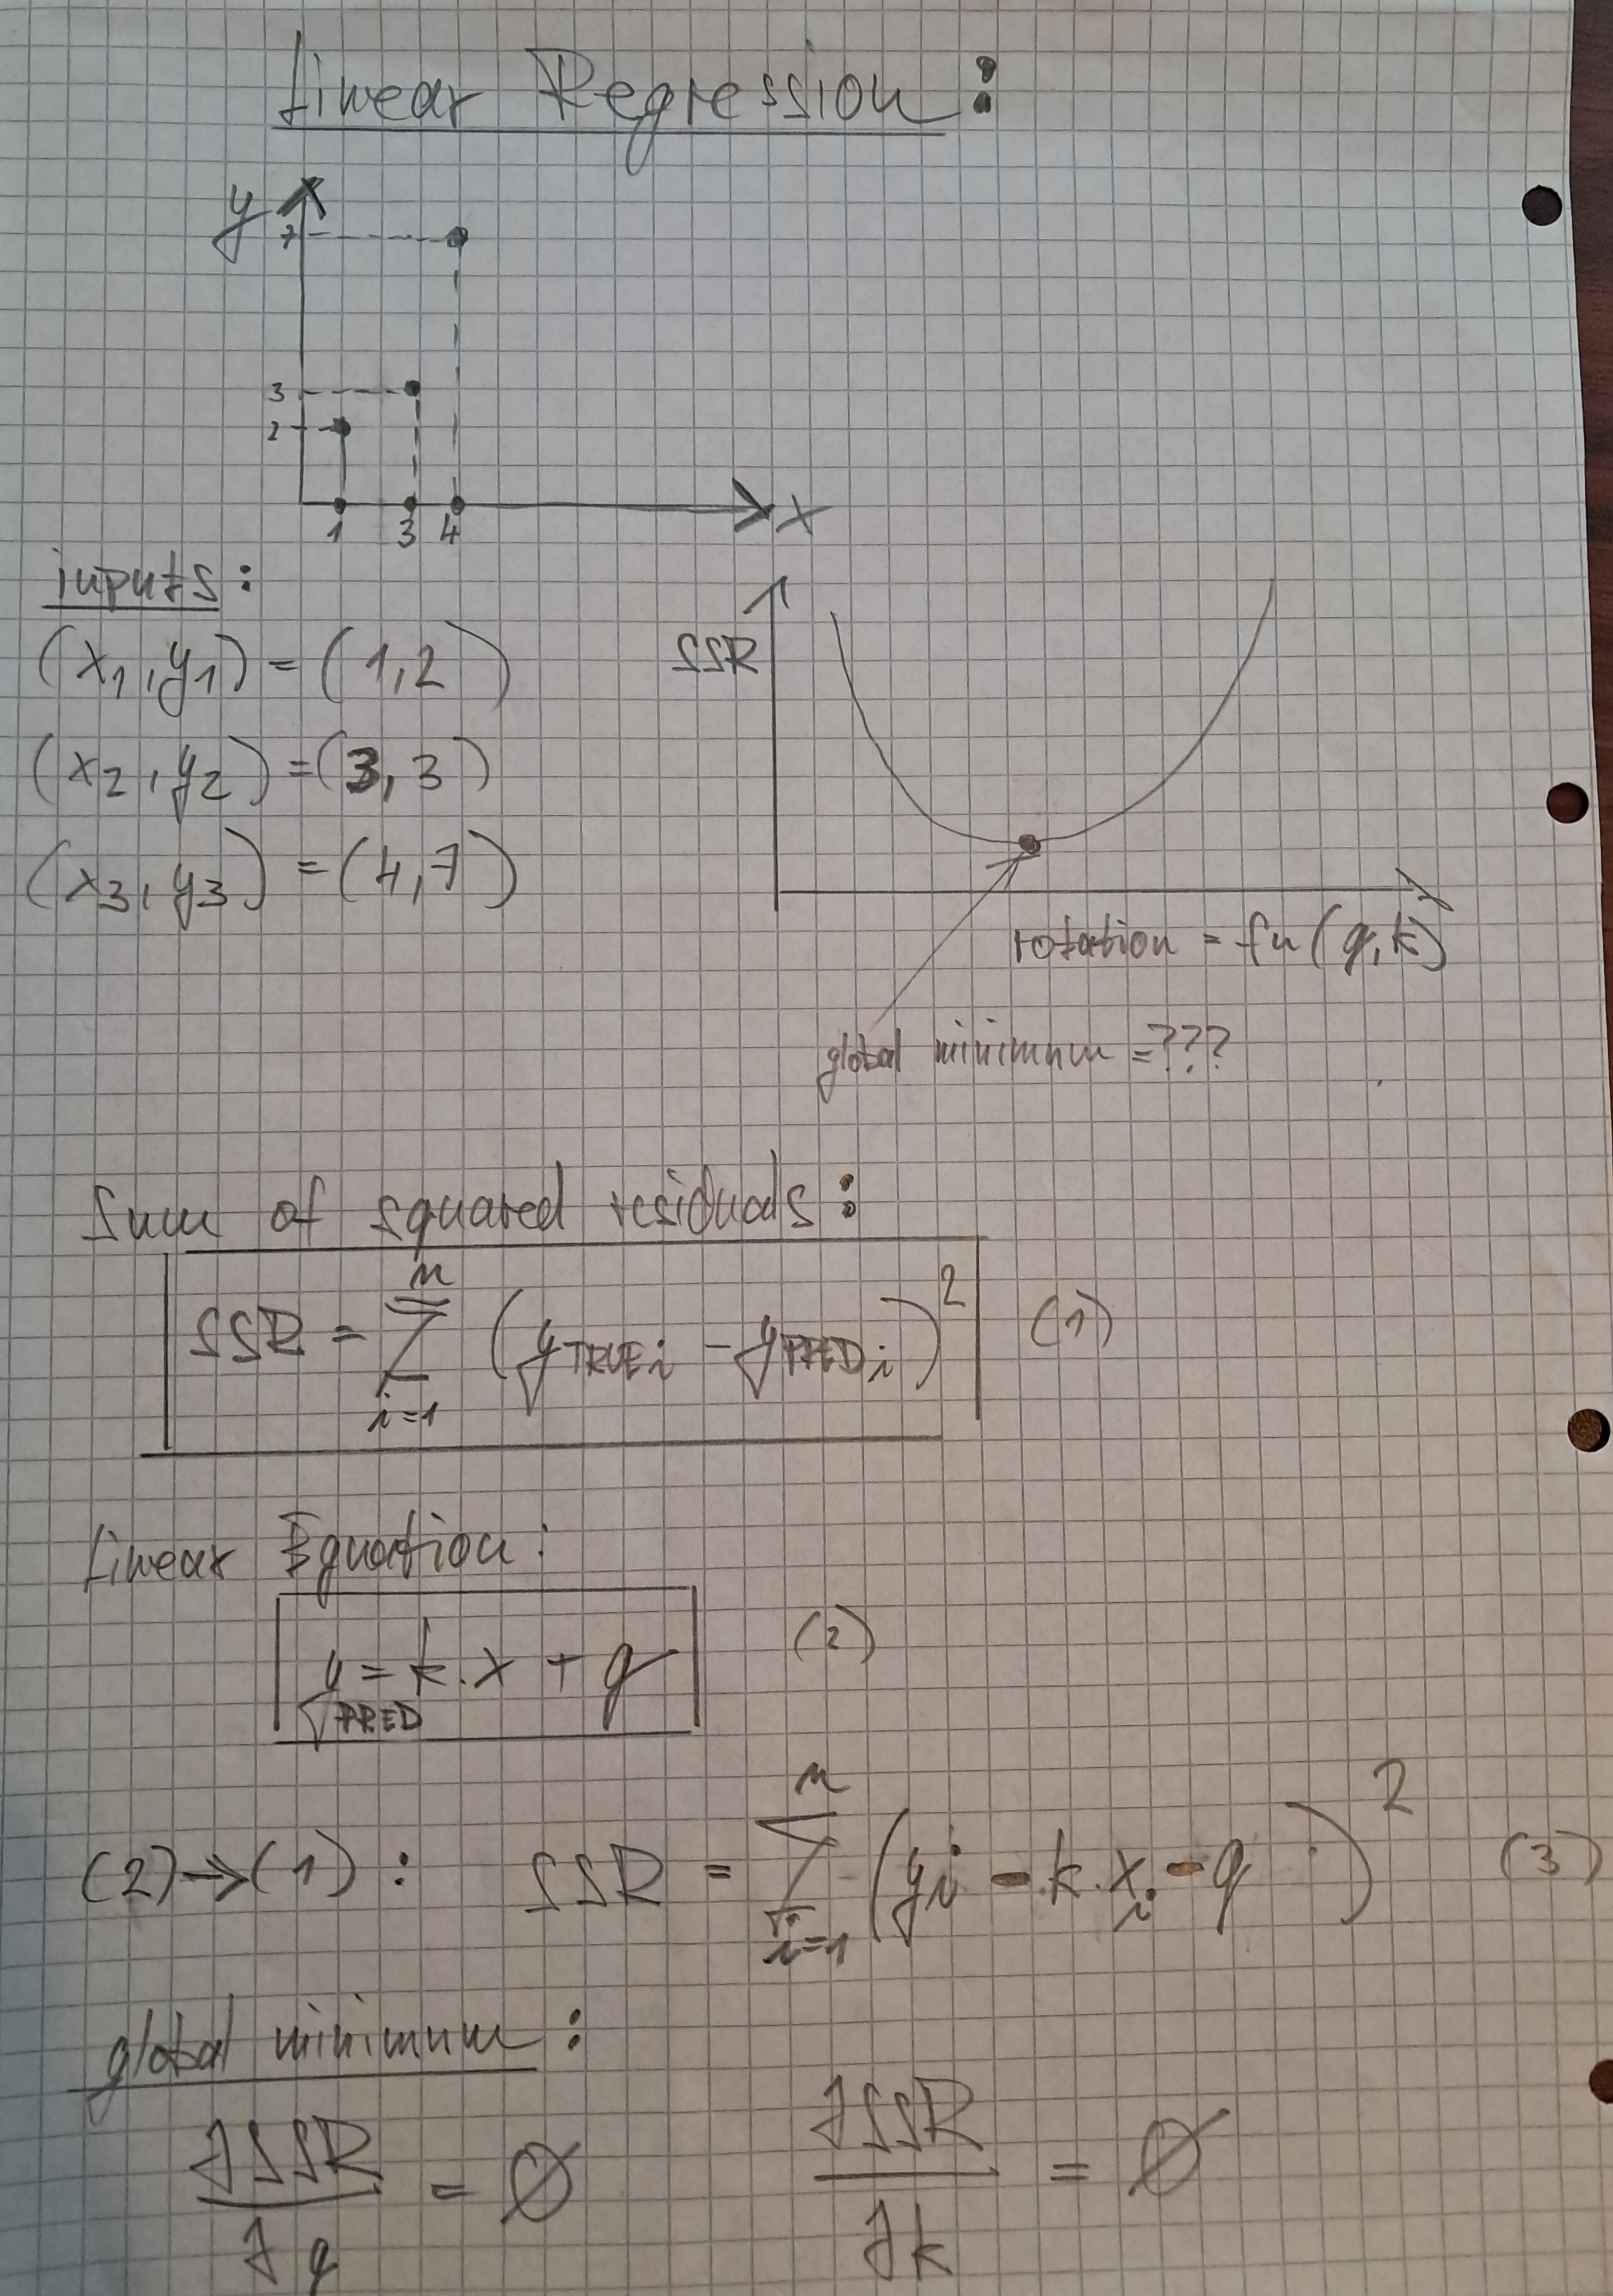 Linear Regression:
y
7
3
2
1 3 4 x
inputs:
(x₁, y₁) = (1, 2)
SSR
(x₂, y₂) = (3, 3)
(x₃, y₃) = (4, 7)
rotation = fn(q, k)
global minimum = ???
Sum of squared residuals:
SSR = ∑ᵢ₌₁ⁿ (y_TRUEi - y_PREDi)² (1)
Linear Equation:
y_PRED = k . x + q (2)
(2)→(1): SSR = ∑ᵢ₌₁ⁿ (yᵢ - k . xᵢ - q)² (3)
global minimum:
∂SSR/∂q = Ø ∂SSR/∂k = Ø